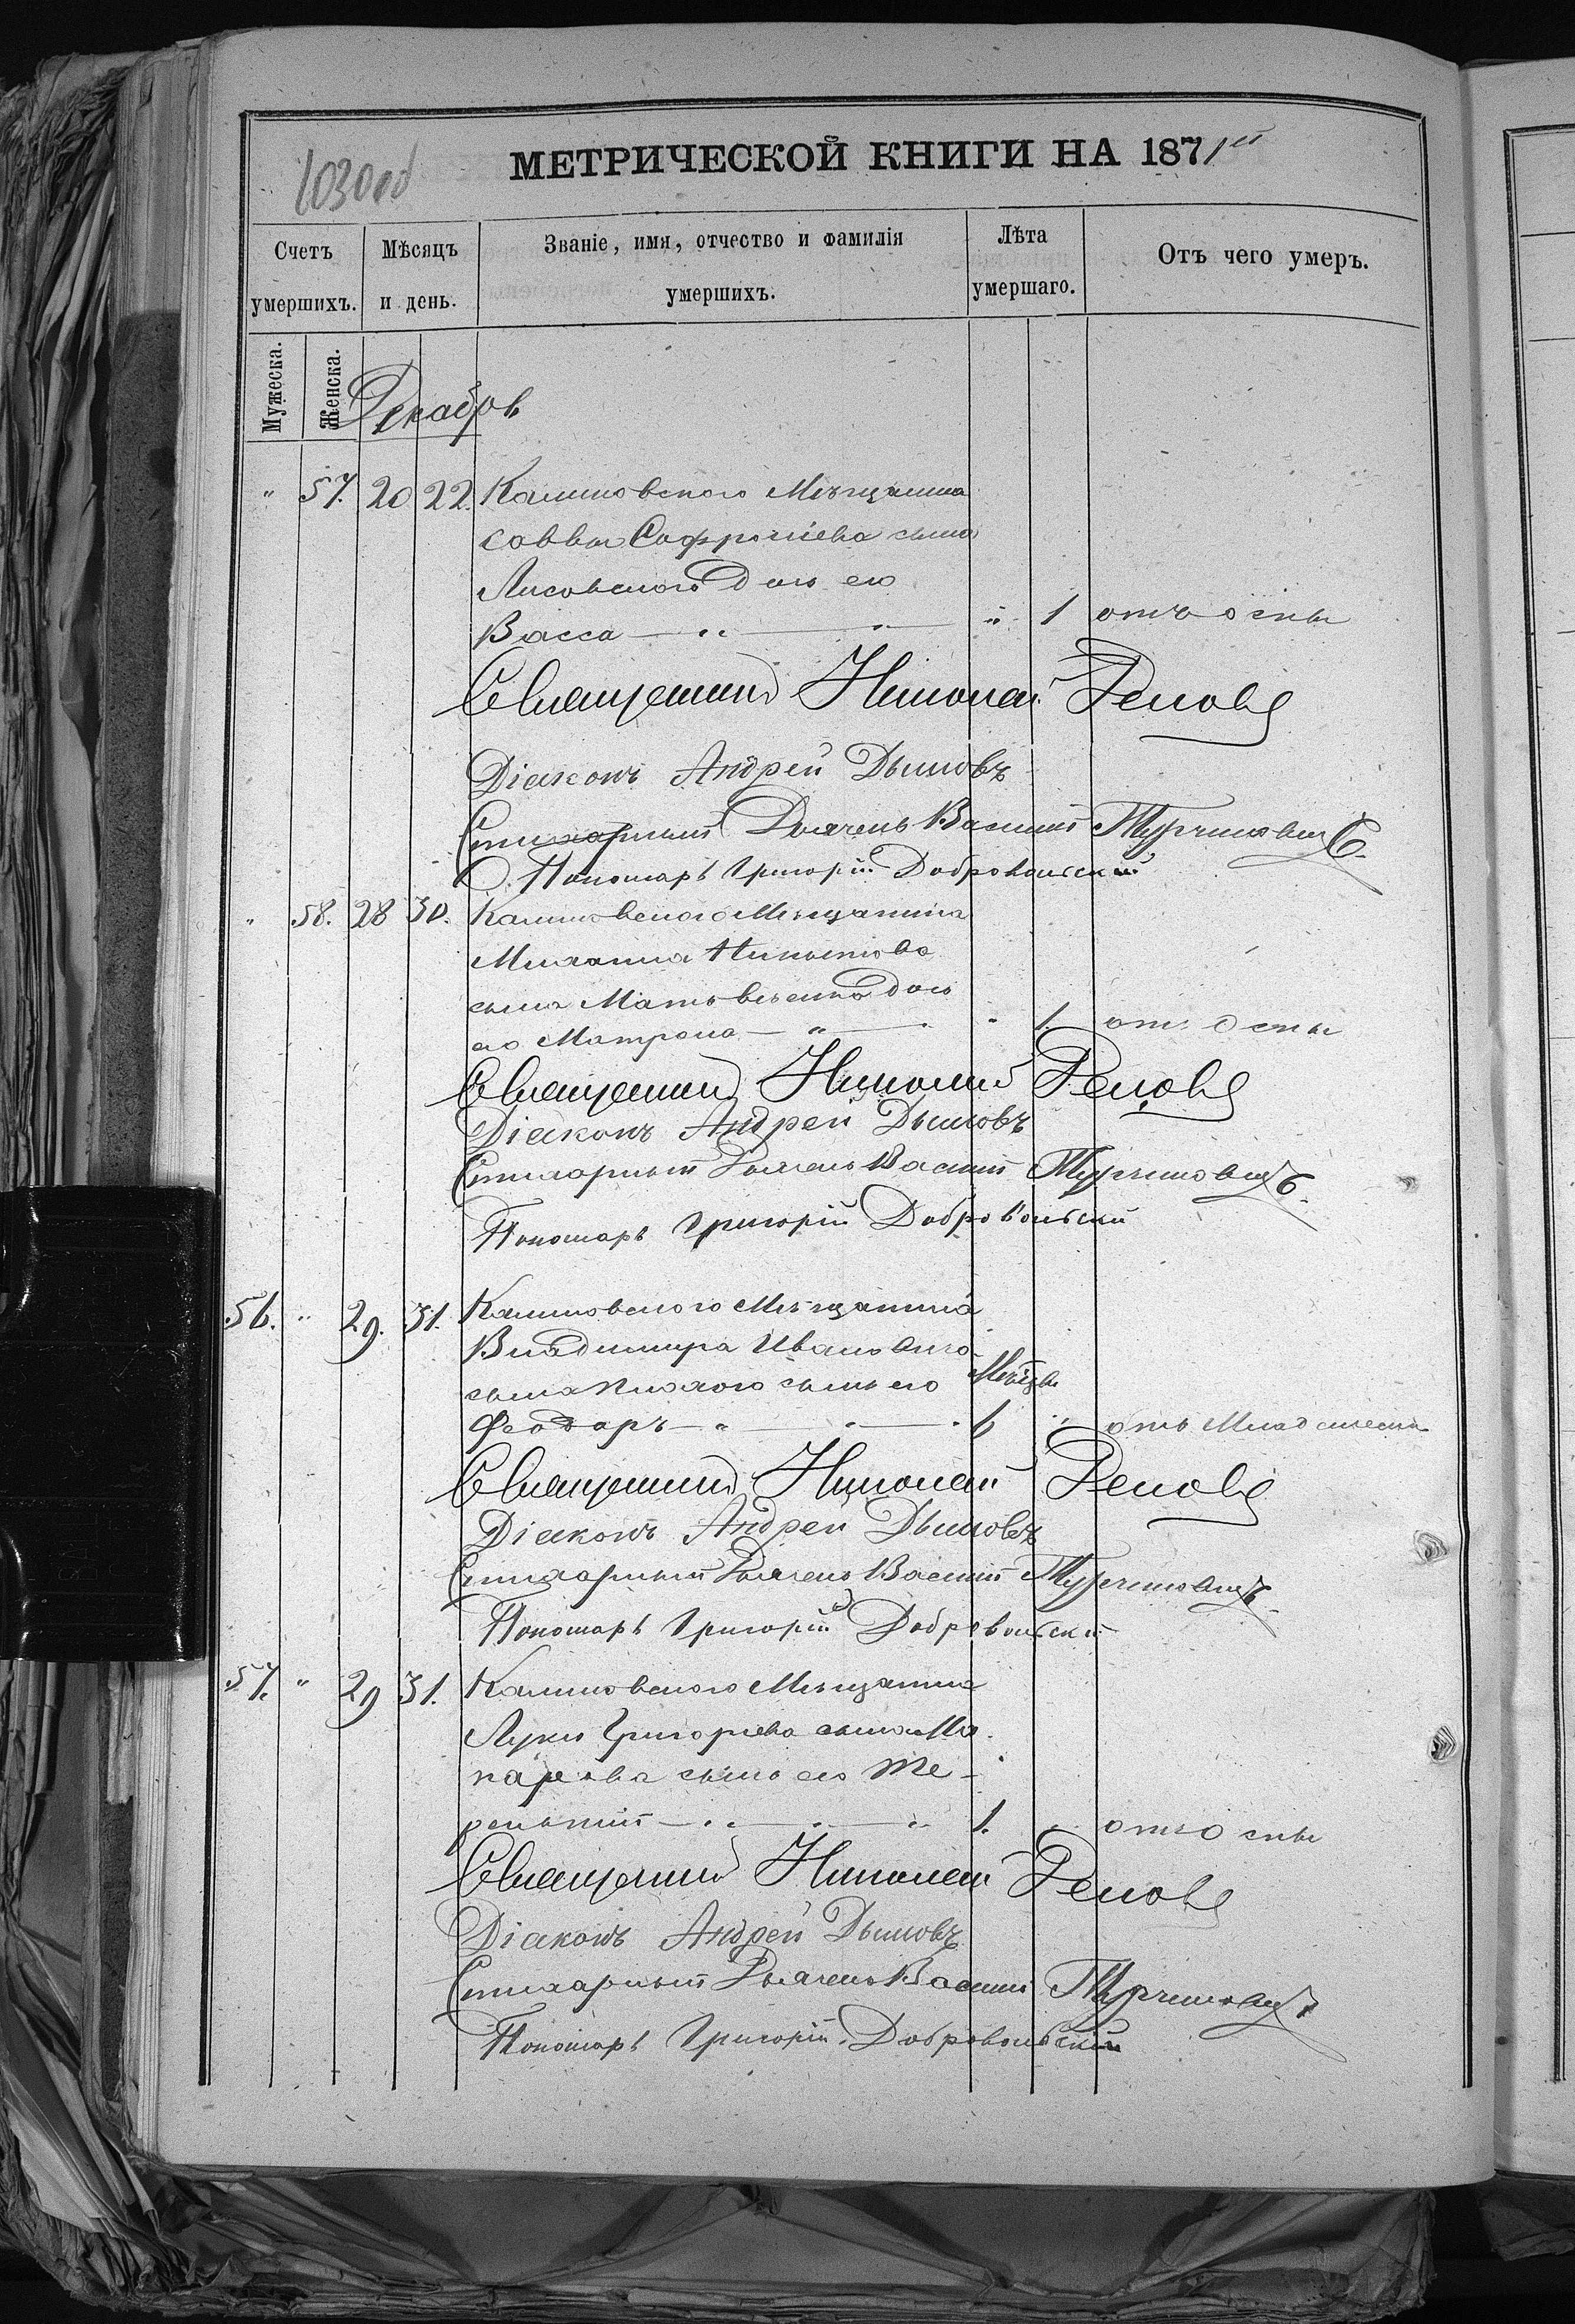 1030 об
МЕТРИЧЕСКОЙ КНИГИ НА 1871й
Счетъ умершихъ.
Мѣсяцъ и день.
Званіе, имя, отчество и фамилія умершихъ.
Лѣта умершаго.
Отъ чего умеръ.
Мужеска. Женска.
Декабрь
" 57. 20 22. Калиновского Мѣщанина
Саввы Софроніева сына
Лисовского дочь его
Васса — " — " — " 1 отъ оспы
Священникъ Николай
Діаконъ Андрей Дымовъ
Стихарный Дьячекъ Василій Турчиновичъ
Пономарь Григорій Добровольскій
" 58. 28 30. Калиновского Мѣщанина
Михаила Никитова
сына Матвѣенка дочь
его Матрона — " — " 1. отъ оспы
Священникъ Николай
Діаконъ Андрей Дымовъ
Стихарный Дьячекъ Василій Турчиновичъ
Пономарь Григорій Добровольскій
56. " 29. 31. Калиновского Мѣщанина
Владимира Иванова
сына сынъ его Мѣсяцы
Феодоръ — " — " — 6 " отъ Младенческ
Священникъ Николай
Діаконъ Андрей Дымовъ
Стихарный Дьячекъ Василій Турчиновичъ
Пономарь Григорій Добровольскій
57. " 29 31. Калиновского Мѣщанина
Луки Григорьева сына Ма-
карова сынъ его Те-
рентій — " — " — " 1. " отъ оспы
Священникъ Николай
Діаконъ Андрей Дымовъ
Стихарный Дьячекъ Василій Турчиновичъ
Пономарь Григорій Добровольскій